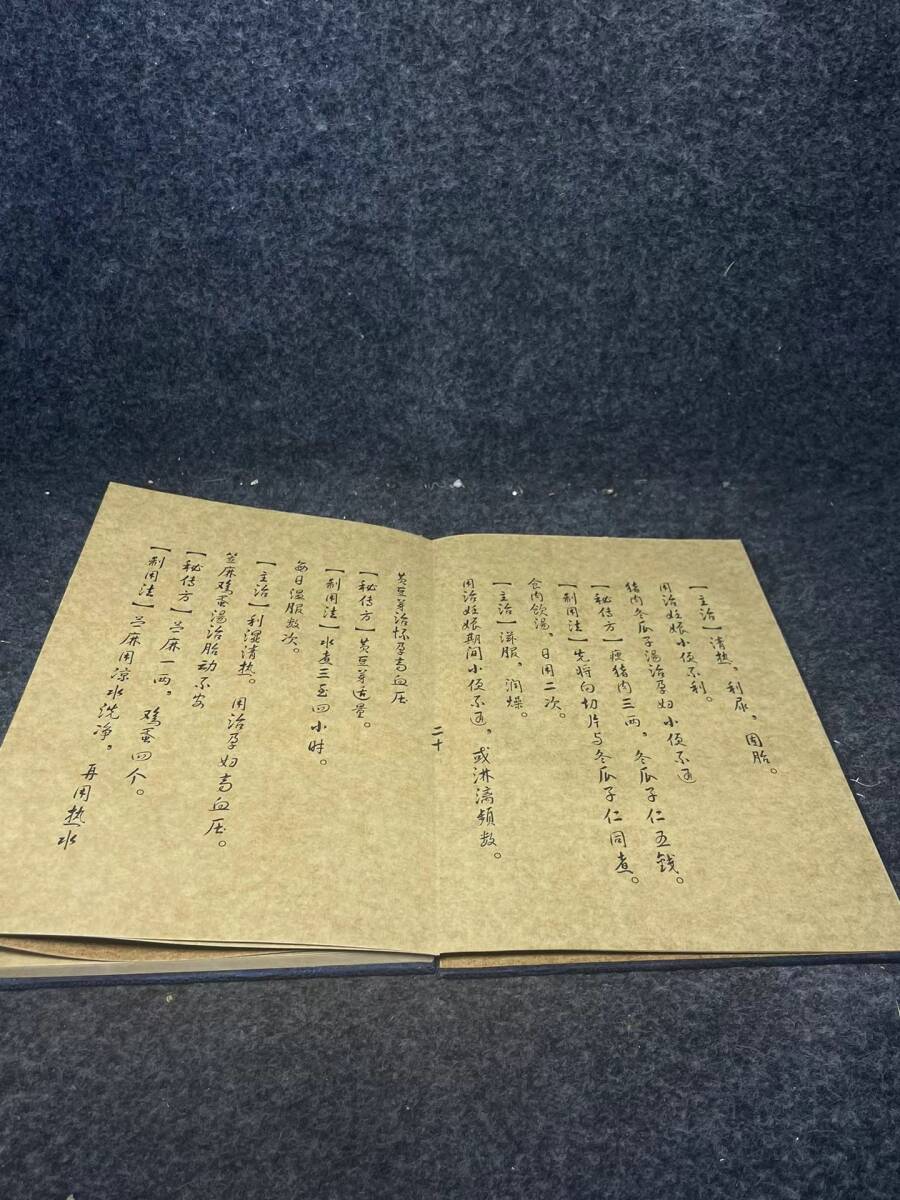 【主治】清热，利尿，固胎。
用治妊娠小便不利。
猪肉冬瓜子湯治孕妇小便不通
【秘传方】瘦猪肉三两，冬瓜子仁五錢。
【制用法】先将肉切片与冬瓜子仁同煮。
食肉飲湯，日用二次。
【主治】滋腴，润燥。
用治妊娠期间小便不通，或淋漓頻数。
二十
黄豆芽治怀孕高血压
【秘传方】黄豆芽适量。
【制用法】水煮三至四小时。
每日温服数次。
【主治】利湿清热。用治孕妇高血压。
苎麻鸡蛋湯治胎动不安
【秘传方】苎麻一两，鸡蛋四个。
【制用法】苎麻用凉水洗净，再用热水